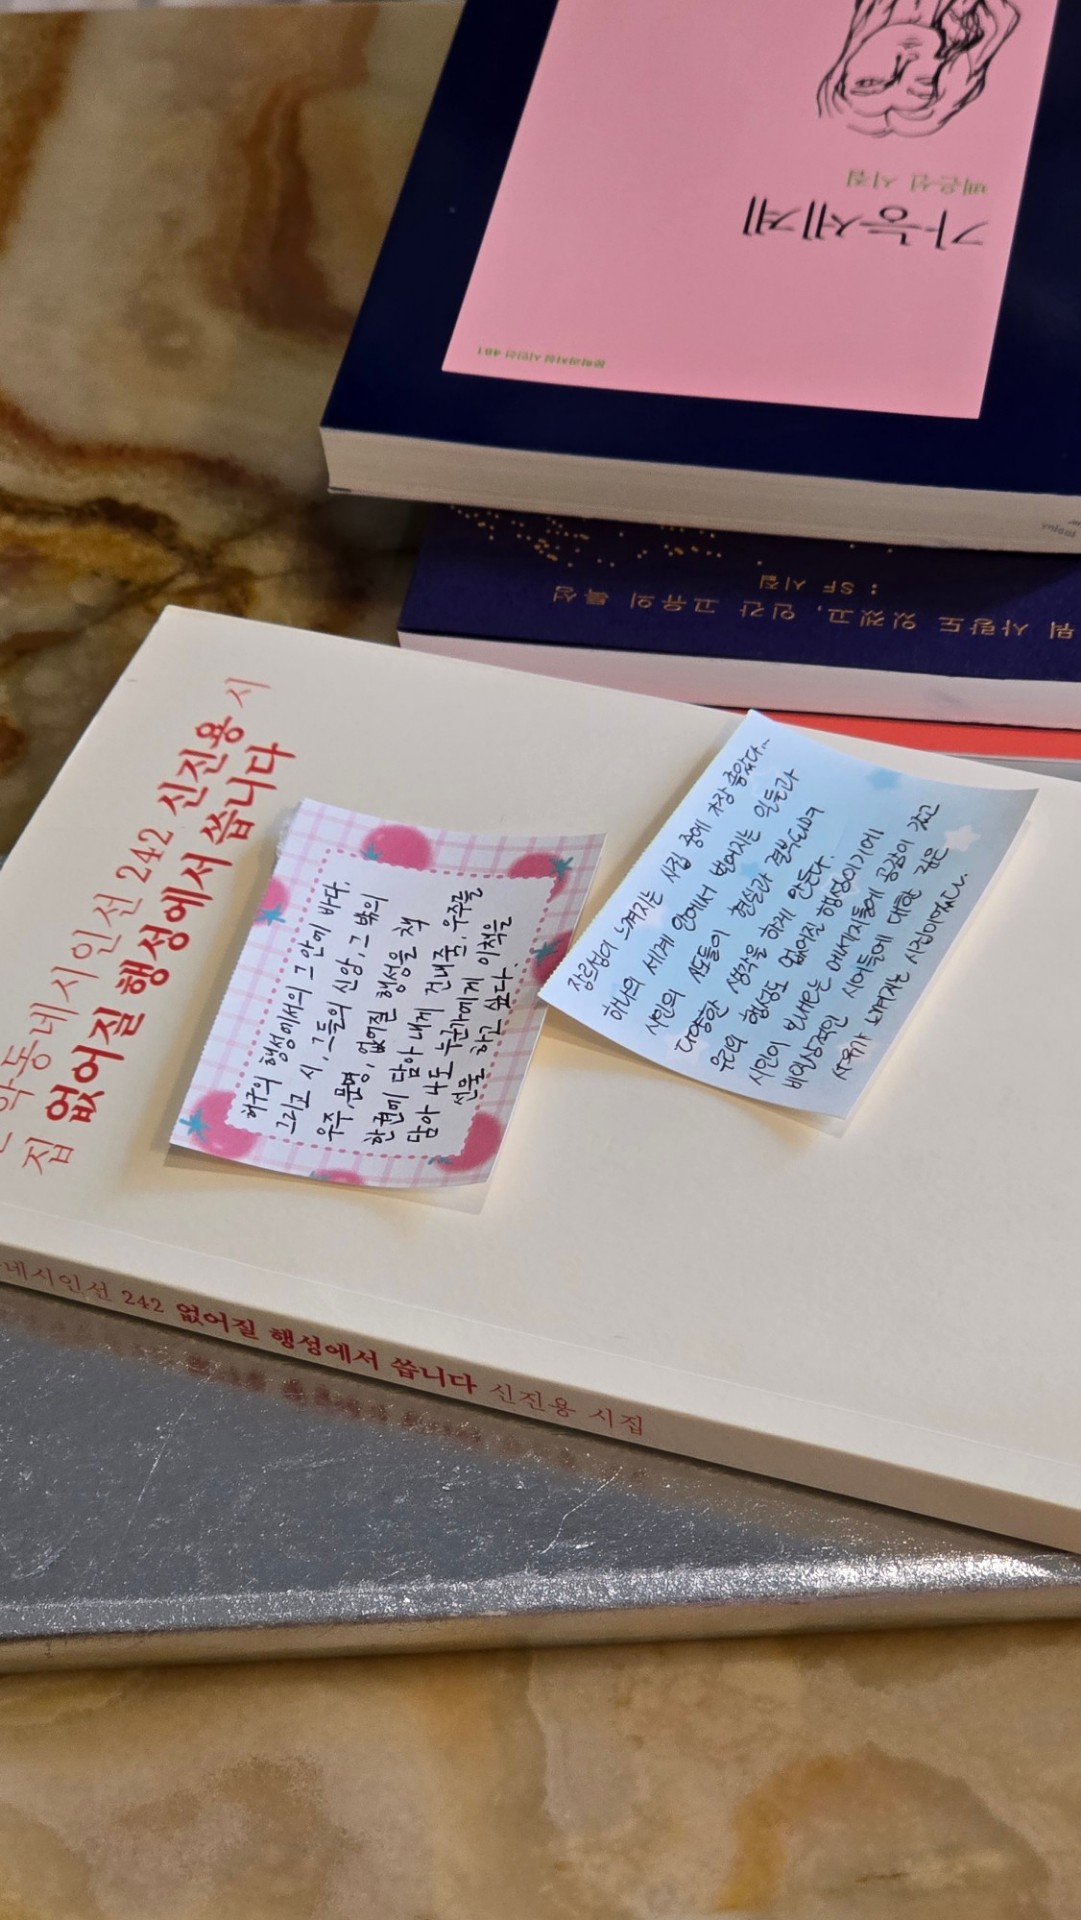 배은선 시집
가능세계
문학과지성 시인선 481
뭐 사랑도 있겠고, 인간 고유의 특성
: SF 시집
동네시인선 242 신진용 시
집 없어질 행성에서 씁니다
허구의 행성에서의 그 안에 바다,
그리고 시, 그들의 신앙, 그 밖의
우주, 문명, 없어질 행성을 책
한권에 담아 내게 건내줄 우주를
담아 나도 누군가에게 이책을
선물 하고 싶다.
장르성이 느껴지는 시집 중에 가장 좋았다..
하나의 세계 안에서 벌어지는 일들과
시인의 시도들이 현실과 전복되며
다양한 생각을 하게 만든다.
우리의 행성도 없어질 행성이기에
시인이 보내는 메세지들에 공감이 갔고
비일상적인 시어들에 대한 깊은
사유가 느껴지는 시집이었다.
네시인선 242 없어질 행성에서 씁니다 신진용 시집